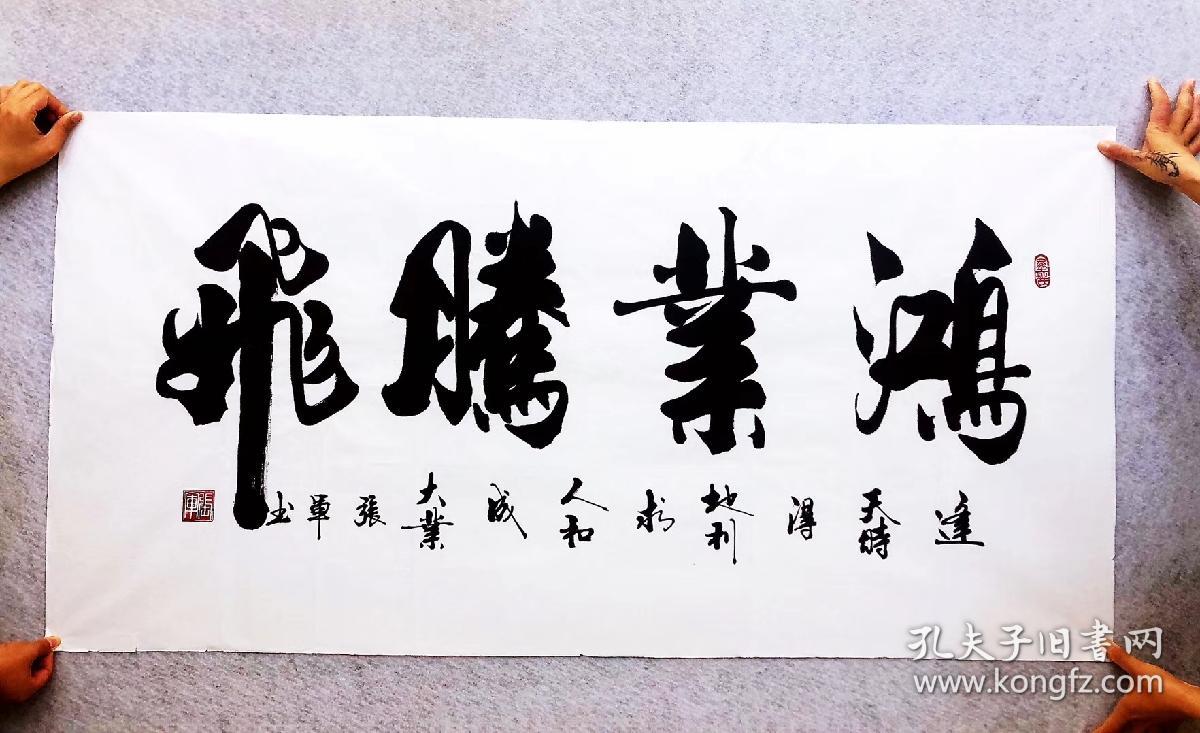 鴻業騰飛
逢天時得地利求人和成大業張軍书
張軍
孔夫子旧書网
www.kongfz.com